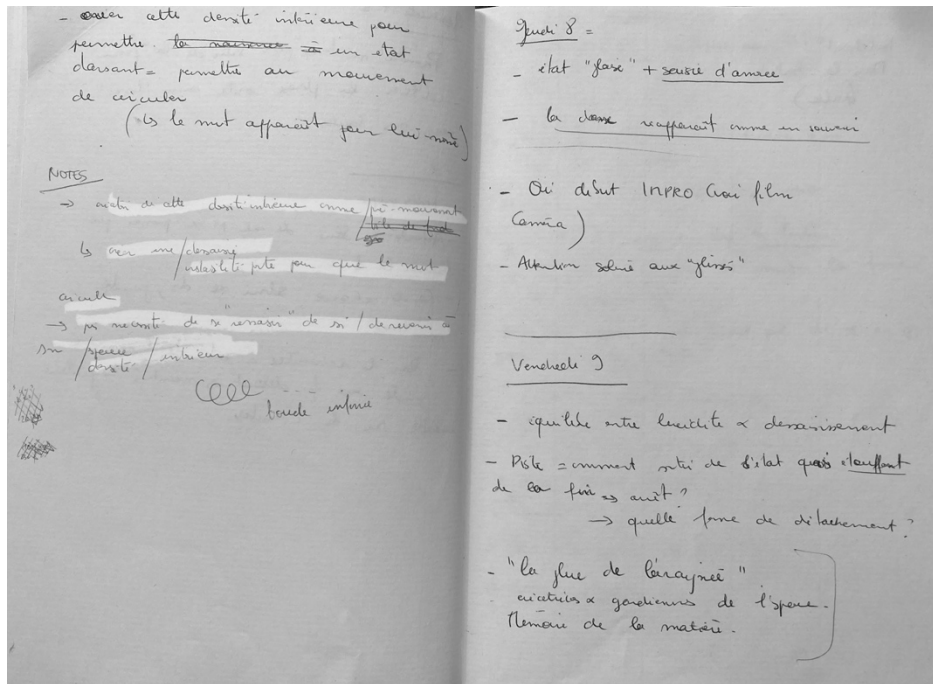 - créer cette densité intérieure pour
permettre la naissance à un état
dansant = permettre au mouvement
de circuler
(↳ le mvt apparaît pour lui-même)
NOTES
→ cette densité intérieure comme / pré-mouvement
↳ créer une / densité
instabilité pour que le mvt
circule
→ nécessité de se "ressaisir" de soi / de revenir à
son / densité / intérieur
boucle infinie
Jeudi 8 =
- état "glasé" + d'amorce
- la danse réapparaît comme un souvenir
- Où début INPRO (voir film
Caméra)
- Attention aux "glissés"
Vendredi 9
- équilibre entre lucidité & dessaisissement
- Piste = comment sortir de l'état quasi étouffant
de la fin => arrêt ?
→ quelle forme de détachement ?
- "la glue de l'araignée"
créatrices & gardiennes de l'espace.
Mémoire de la matière.